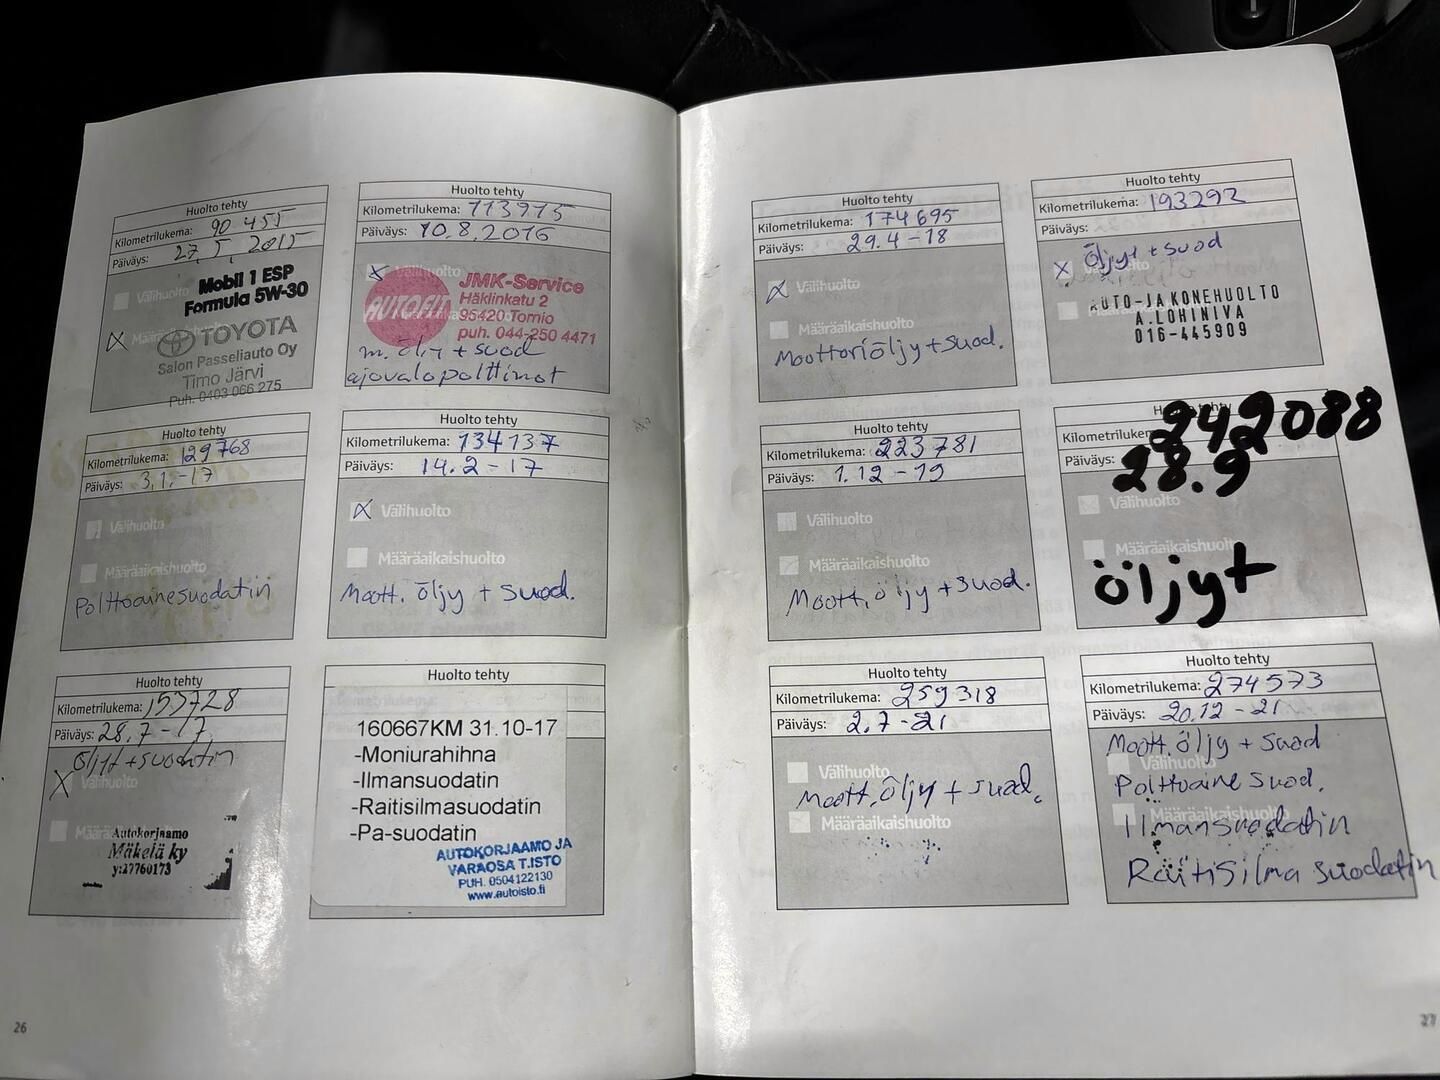 Huolto tehty
Kilometrilukema: 90 455
Päiväys: 27.5.2015
Välihuolto
Mobil 1 ESP
Formula 5W-30
TOYOTA
Salon Passeliauto Oy
Timo Järvi
Puh. 0403 066 275
Huolto tehty
Kilometrilukema: 113975
Päiväys: 10.8.2016
Välihuolto
AUTOFIT
JMK-Service
Häklinkatu 2
95420 Tornio
puh. 044-250 4471
m. öljy + suod
ajovalopolttimot
Huolto tehty
Kilometrilukema: 129768
Päiväys: 3.1.-17
Välihuolto
Määräaikaishuolto
Polttoainesuodatin
Huolto tehty
Kilometrilukema: 134137
Päiväys: 14.2-17
Välihuolto
Määräaikaishuolto
Moott. öljy + suod.
Huolto tehty
Kilometrilukema: 153728
Päiväys: 28.7-17
öljyt + suodatin
Välihuolto
Autokorjaamo
Mäkelä ky
y:27760173
Huolto tehty
160667KM 31.10-17
-Moniurahihna
-Ilmansuodatin
-Raitisilmasuodatin
-Pa-suodatin
AUTOKORJAAMO JA
VARAOSA T.ISTO
PUH. 0504122130
www.autoisto.fi
26
Huolto tehty
Kilometrilukema: 174695
Päiväys: 29.4-18
Välihuolto
Määräaikaishuolto
Moottoriöljy + suod.
Huolto tehty
Kilometrilukema: 193292
Päiväys:
Öljyt + suod
AUTO- JA KONEHUOLTO
A.LOHINIVA
016-445909
Huolto tehty
Kilometrilukema: 223781
Päiväys: 1.12-19
Välihuolto
Määräaikaishuolto
Moott. öljy + suod.
Huolto tehty
Kilometrilukema: 242088
Päiväys: 28.9
Välihuolto
Määräaikaishuolto
öljyt
Huolto tehty
Kilometrilukema: 259318
Päiväys: 2.7-21
Välihuolto
Moott. öljy + suod.
Määräaikaishuolto
Huolto tehty
Kilometrilukema: 274573
Päiväys: 20.12-21
Moott. öljy + suod
Välihuolto
Polttoaine suod.
Määräaikaishuolto
Ilmansuodatin
Raitisilma suodatin
27